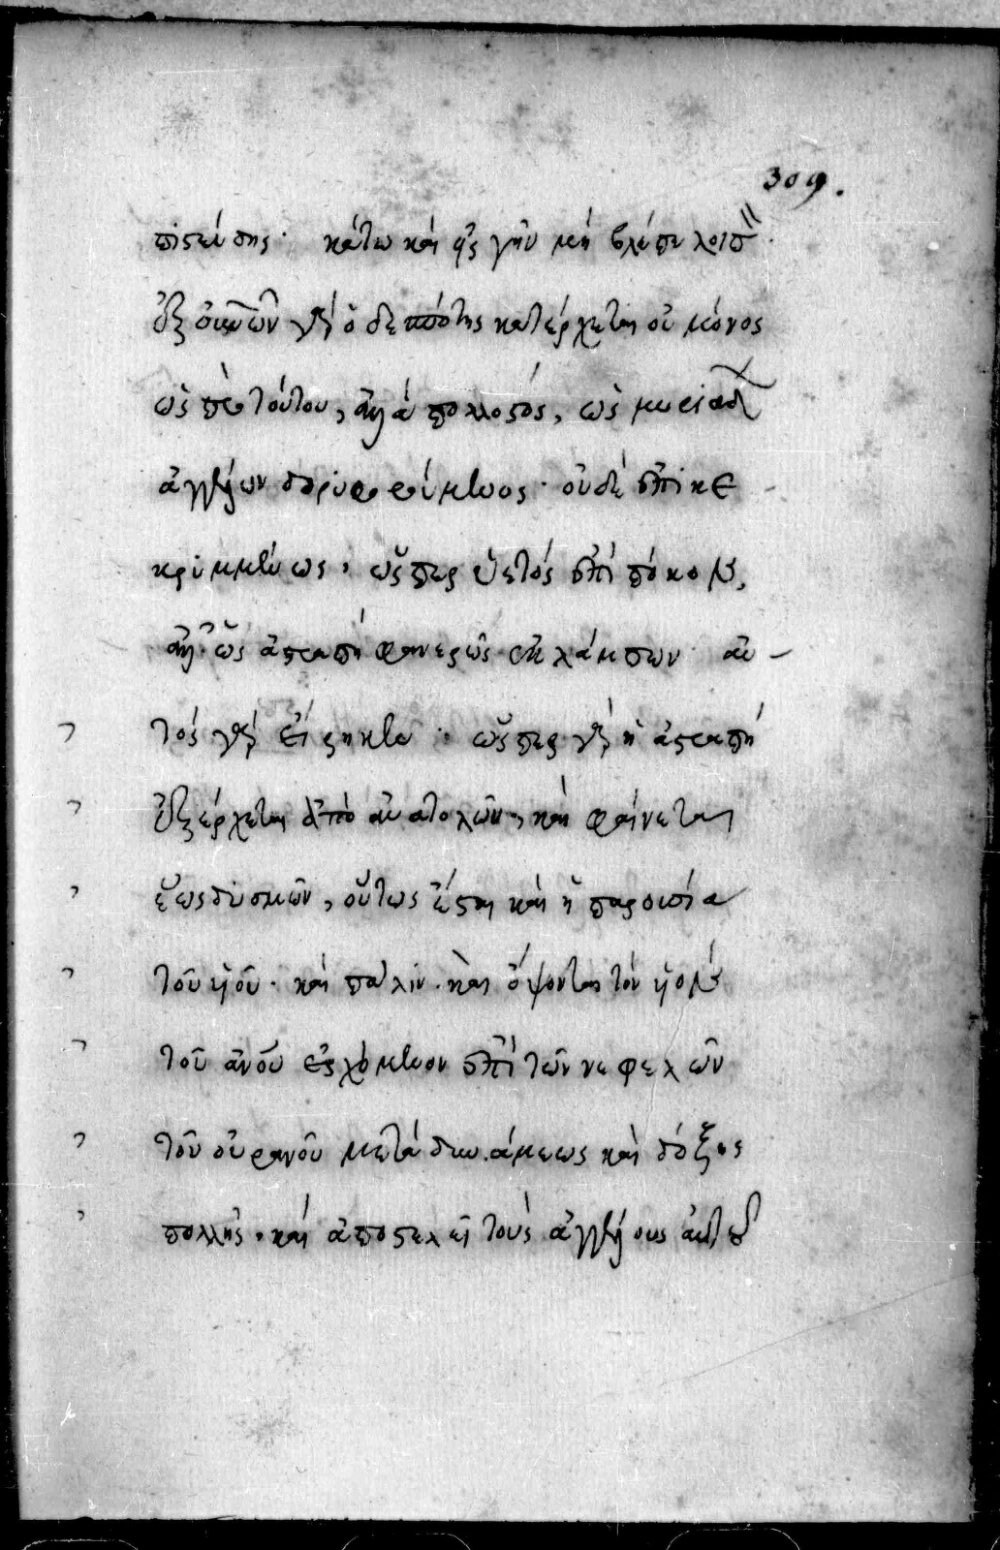 309.
πιστεύσης· κάτω καὶ εἰς γῆν μὴ βλέπε λοιπ
ἐξ οὐρανῶν γὰρ ὁ δεσπότης κατέρχεται οὐ μόνος
ὡς πρὸ τούτου, ἀλλὰ πολλοστός, ὡς μυριάδ
ἀγγέλων δορυφορούμενος· οὐδὲ ἐπικε
κρυμμένως, ὥσπερ ὑετὸς ἐπὶ πόκον,
ἀλλ' ὡς ἀστραπὴ φανερῶς ἐκλάμπων· αὐ-
τὸς γὰρ εἴρηκεν· ὥσπερ γὰρ ἡ ἀστραπὴ
ἐξέρχεται ἀπὸ ἀνατολῶν, καὶ φαίνεται
ἕως δυσμῶν, οὕτως ἔσται καὶ ἡ παρουσία
τοῦ υἱοῦ· καὶ πάλιν· καὶ ὄψονται τὸν υἱὸν
τοῦ ἀνου ἐρχόμενον ἐπὶ τῶν νεφελῶν
τοῦ οὐρανοῦ μετὰ δυνάμεως καὶ δόξης
πολλῆς· καὶ ἀποστελεῖ τοὺς ἀγγέλους αὐτοῦ